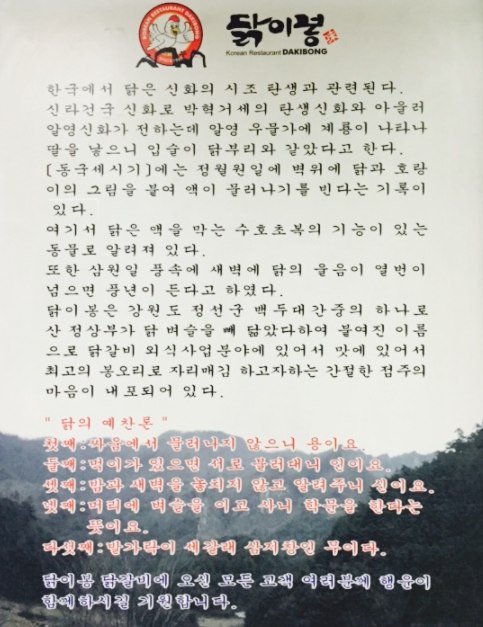 KOREAN RESTAURANT DAKIBONG
닭이봉
Korean Restaurant DAKIBONG
한국에서 닭은 신화의 시조 탄생과 관련된다.
신라건국 신화로 박혁거세의 탄생신화와 아울러
알영신화가 전하는데 알영 우물가에 계룡이 나타나
딸을 낳으니 입술이 닭부리와 같았다고 한다.
[동국세시기]에는 정월원일에 벽위에 닭과 호랑
이의 그림을 붙여 액이 물러나기를 빈다는 기록이
있다.
여기서 닭은 액을 막는 수호초복의 기능이 있는
동물로 알려져 있다.
또한 삼원일 풍속에 새벽에 닭의 울음이 열번이
넘으면 풍년이 든다고 하였다.
닭이봉은 강원도 정선군 백두대간중의 하나로
산 정상부가 닭 벼슬을 빼 닮았다하여 붙여진 이름
으로 닭갈비 외식사업분야에 있어서 맛에 있어서
최고의 봉오리로 자리매김 하고자하는 간절한 점주의
마음이 내포되어 있다.
" 닭의 예찬론 "
첫째:싸움에서 물러나지 않으니 용이요.
둘째:먹이가 있으면 서로 불러대니 인이요.
셋째:밤과 새벽을 놓치지 않고 알려주니 신이요.
넷째:머리에 벼슬을 이고 사니 학문을 한다는
뜻이요.
다섯째:발가락이 세갈래 삼지창인 무이다.
닭이봉 닭갈비에 오신 모든 고객 여러분께 행운이
함께하시길 기원합니다.